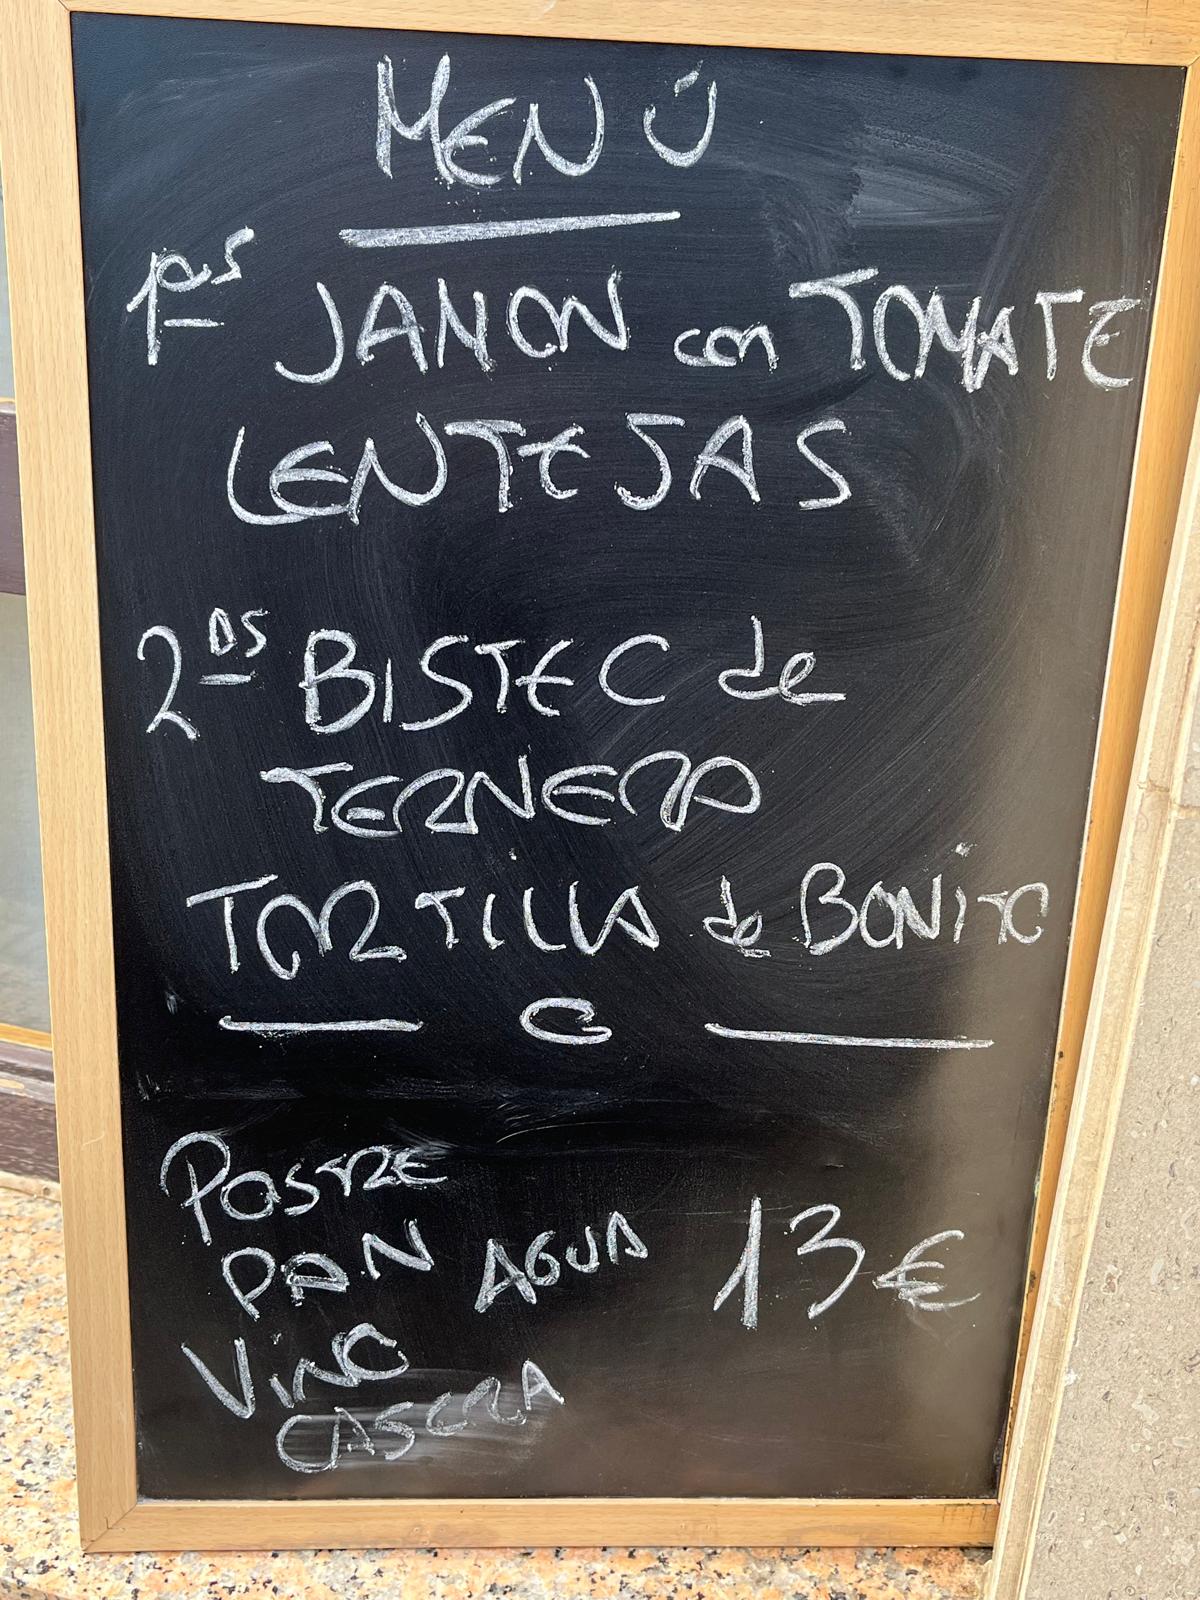 MENÚ
1ºs JAMON con TOMATE
LENTEJAS
2ºs BISTEC de
TERNERA
TORTILLA de BONITO
POSTRE
PAN AGUA 13€
VINO
CASERA